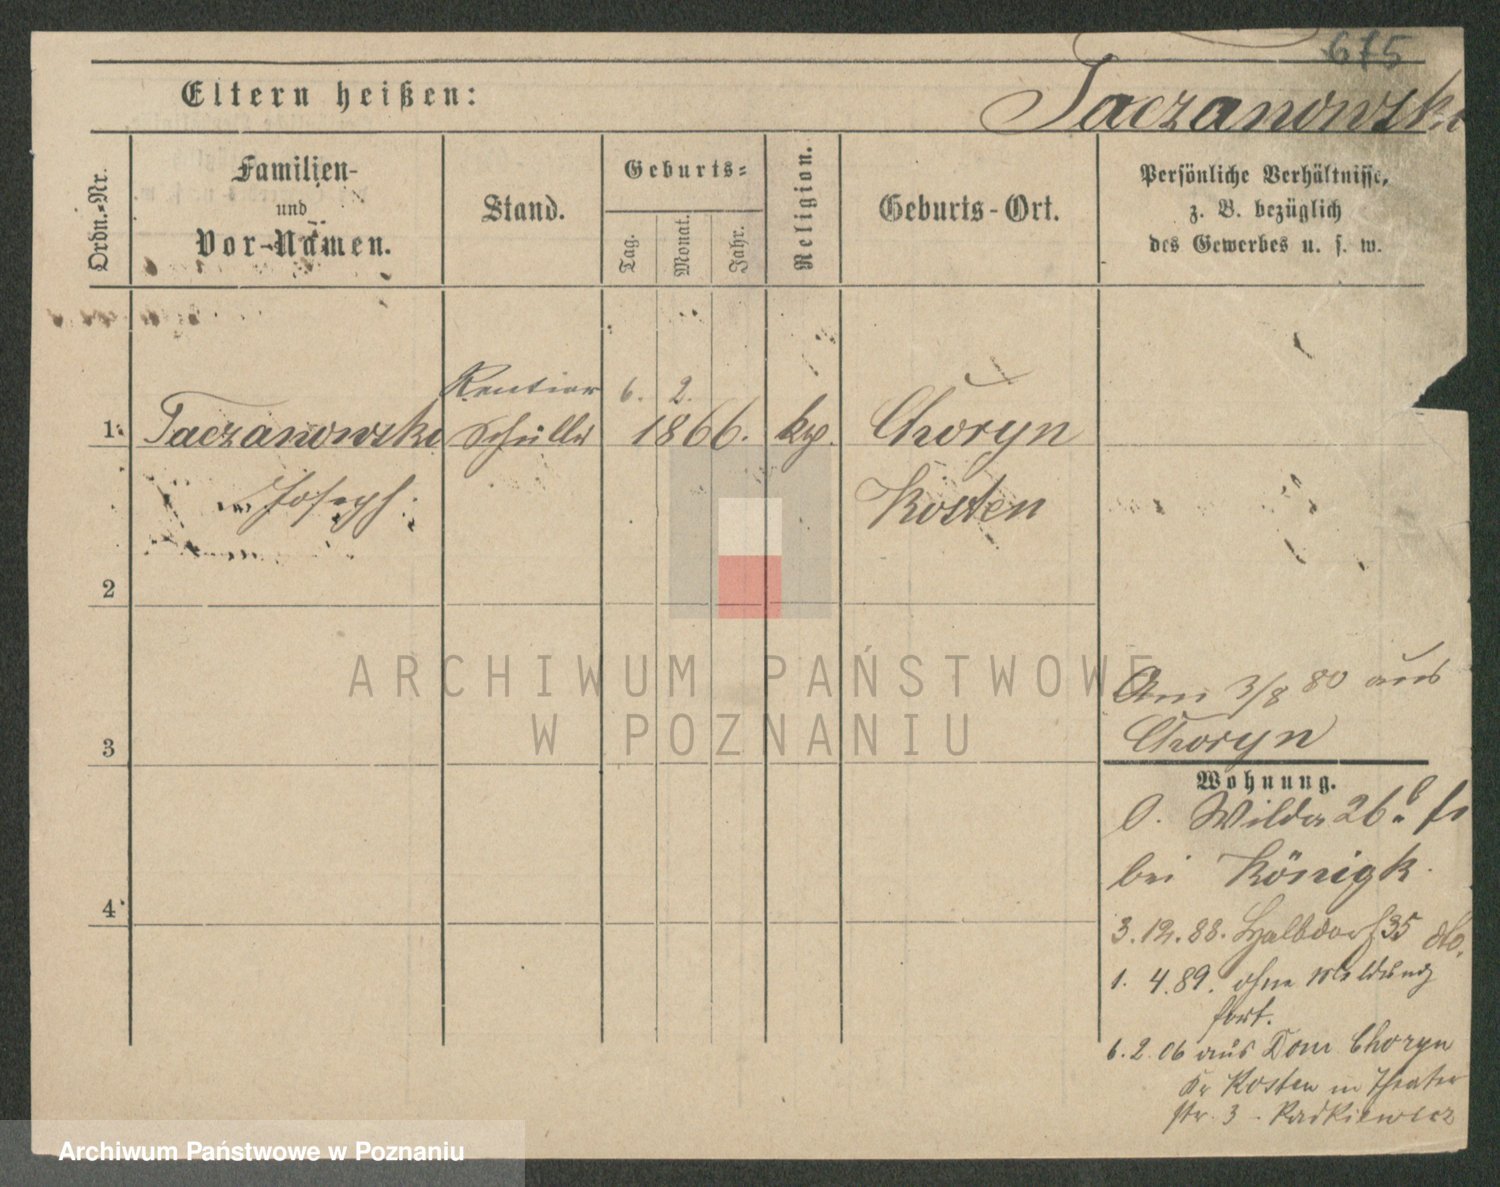 675
Eltern heißen:
Taczanowski
Ordn.-Nr.
Familien-
und
Vor-Namen.
Stand.
Geburts-
Tag.
Monat.
Jahr.
Religion.
Geburts-Ort.
Persönliche Verhältnisse,
z. B. bezüglich
des Gewerbes u. s. w.
Rentier 6. 2.
1. Taczanowski Schüler 1866. kp. Choryn
Joseph. Kosten
2
3
4
Am 3/8 80 aus
Choryn
Wohnung.
O. Wilda 26
bei König k.
3.12.88. Halbdorf 35 dto.
1. 4. 89. ohne Meldung
fort.
6. 2. 06 aus Dom Choryn
Kr Kosten in Theater
str. 3 - Radkiewicz
ARCHIWUM PAŃSTWOWE
W POZNANIU
Archiwum Państwowe w Poznaniu